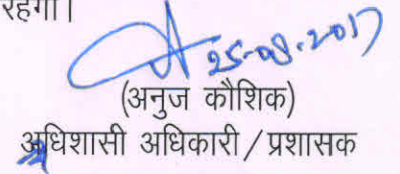 रहेगा।
25-08-2017
(अनुज कौशिक)
अधिशासी अधिकारी / प्रशासक